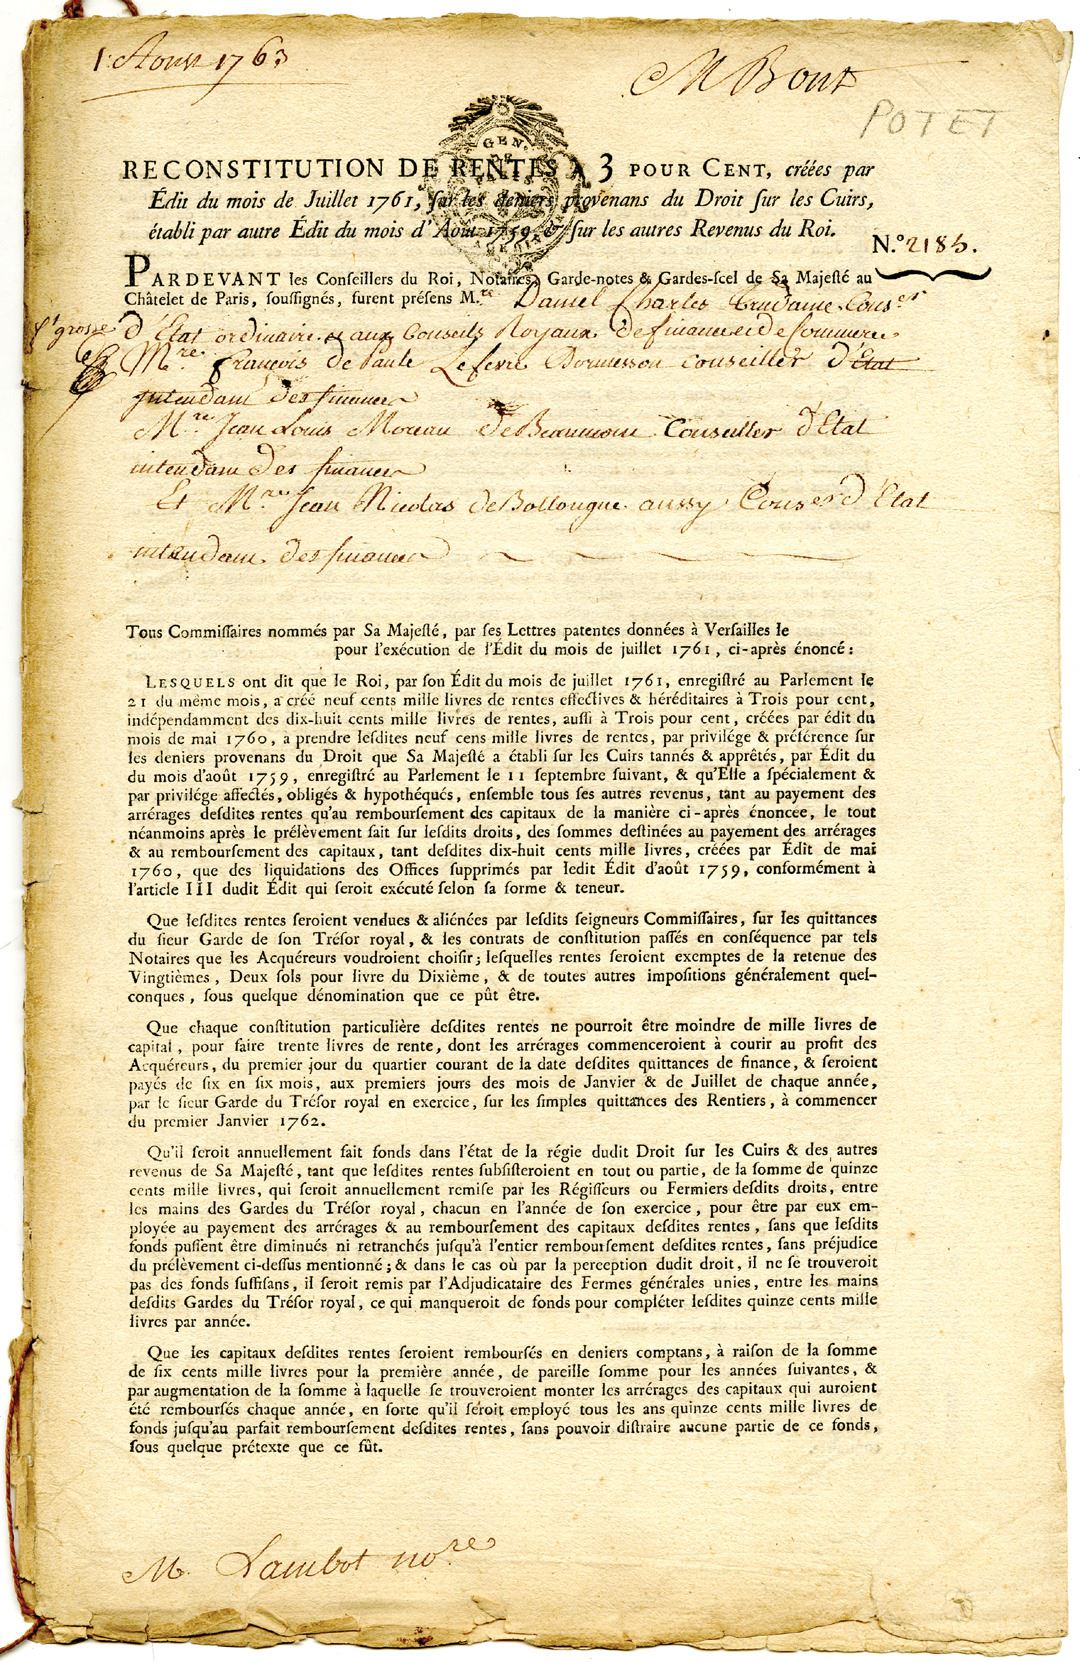 1. Aoust 1763
M Bont
POTET
GEN. DE PARIS
RECONSTITUTION DE RENTES A 3 POUR CENT, créées par
Édit du mois de Juillet 1761, ſur les deniers provenans du Droit ſur les Cuirs,
établi par autre Édit du mois d'Août 1759, & ſur les autres Revenus du Roi.
N.º 2185.
PARDEVANT les Conſeillers du Roi, Notaires, Garde-notes & Gardes-ſcel de Sa Majeſté au
Châtelet de Paris, ſouſſignés, furent préſens M.re Daniel Charles Trudaine Conser
1re grosse
d'Etat ordinaire et aux Conseils Royaux de finance et de Commerce
M.re françois de Paule Lefevre Dormesson Conseiller d'Etat
jntendant des finances
M.re Jean Louis Moreau de Beaumont Conseiller d'Etat
intendant des finances
Et M.re Jean Nicolas de Boullongne aussy Conser d'Etat
intendant des finances
Tous Commiſſaires nommés par Sa Majeſté, par ſes Lettres patentes données à Verſailles le
pour l'exécution de l'Édit du mois de juillet 1761, ci-après énoncé:
LESQUELS ont dit que le Roi, par ſon Édit du mois de juillet 1761, enregiſtré au Parlement le
21 du même mois, a créé neuf cents mille livres de rentes effectives & héréditaires à Trois pour cent,
indépendamment des dix-huit cents mille livres de rentes, auſſi à Trois pour cent, créées par édit du
mois de mai 1760, à prendre leſdites neuf cens mille livres de rentes, par privilége & préférence ſur
les deniers provenans du Droit que Sa Majeſté a établi ſur les Cuirs tannés & apprêtés, par Édit du
du mois d'août 1759, enregiſtré au Parlement le 11 ſeptembre ſuivant, & qu'Elle a ſpécialement &
par privilége affectés, obligés & hypothéqués, enſemble tous ſes autres revenus, tant au payement des
arrérages deſdites rentes qu'au rembourſement des capitaux de la manière ci-après énoncée, le tout
néanmoins après le prélèvement fait ſur leſdits droits, des ſommes deſtinées au payement des arrérages
& au rembourſement des capitaux, tant deſdites dix-huit cents mille livres, créées par Édit de mai
1760, que des liquidations des Offices ſupprimés par ledit Édit d'août 1759, conformément à
l'article III dudit Édit qui ſeroit exécuté ſelon ſa forme & teneur.
Que leſdites rentes ſeroient vendues & aliénées par leſdits ſeigneurs Commiſſaires, ſur les quittances
du ſieur Garde de ſon Tréſor royal, & les contrats de conſtitution paſſés en conſéquence par tels
Notaires que les Acquéreurs voudroient choiſir; leſquelles rentes ſeroient exemptes de la retenue des
Vingtièmes, Deux ſols pour livre du Dixième, & de toutes autres impoſitions généralement quel-
conques, ſous quelque dénomination que ce pût être.
Que chaque conſtitution particulière deſdites rentes ne pourroit être moindre de mille livres de
capital, pour faire trente livres de rente, dont les arrérages commenceroient à courir au profit des
Acquéreurs, du premier jour du quartier courant de la date deſdites quittances de finance, & ſeroient
payés de ſix en ſix mois, aux premiers jours des mois de Janvier & de Juillet de chaque année,
par le ſieur Garde du Tréſor royal en exercice, ſur les ſimples quittances des Rentiers, à commencer
du premier Janvier 1762.
Qu'il ſeroit annuellement fait fonds dans l'état de la régie dudit Droit ſur les Cuirs & des autres
revenus de Sa Majeſté, tant que leſdites rentes ſubſiſteroient en tout ou partie, de la ſomme de quinze
cents mille livres, qui ſeroit annuellement remiſe par les Régiſſeurs ou Fermiers deſdits droits, entre
les mains des Gardes du Tréſor royal, chacun en l'année de ſon exercice, pour être par eux em-
ployée au payement des arrérages & au rembourſement des capitaux deſdites rentes, ſans que leſdits
fonds puſſent être diminués ni retranchés juſqu'à l'entier rembourſement deſdites rentes, ſans préjudice
du prélèvement ci-deſſus mentionné; & dans le cas où par la perception dudit droit, il ne ſe trouveroit
pas des fonds ſuffiſans, il ſeroit remis par l'Adjudicataire des Fermes générales unies, entre les mains
deſdits Gardes du Tréſor royal, ce qui manqueroit de fonds pour compléter leſdites quinze cents mille
livres par année.
Que les capitaux deſdites rentes ſeroient rembourſés en deniers comptans, à raiſon de la ſomme
de ſix cents mille livres pour la première année, de pareille ſomme pour les années ſuivantes, &
par augmentation de la ſomme à laquelle ſe trouveroient monter les arrérages des capitaux qui auroient
été rembourſés chaque année, en ſorte qu'il ſeroit employé tous les ans quinze cents mille livres de
fonds juſqu'au parfait rembourſement deſdites rentes, ſans pouvoir diſtraire aucune partie de ce fonds,
ſous quelque prétexte que ce fût.
M. Lambot nore